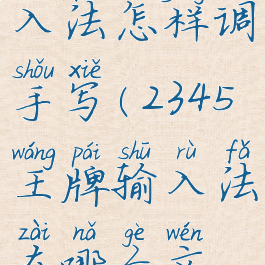 入法怎样调
shǒu xiě
手写(2345
wáng pái shū rù fǎ
王牌输入法
zài nǎ gè wén
在哪个文